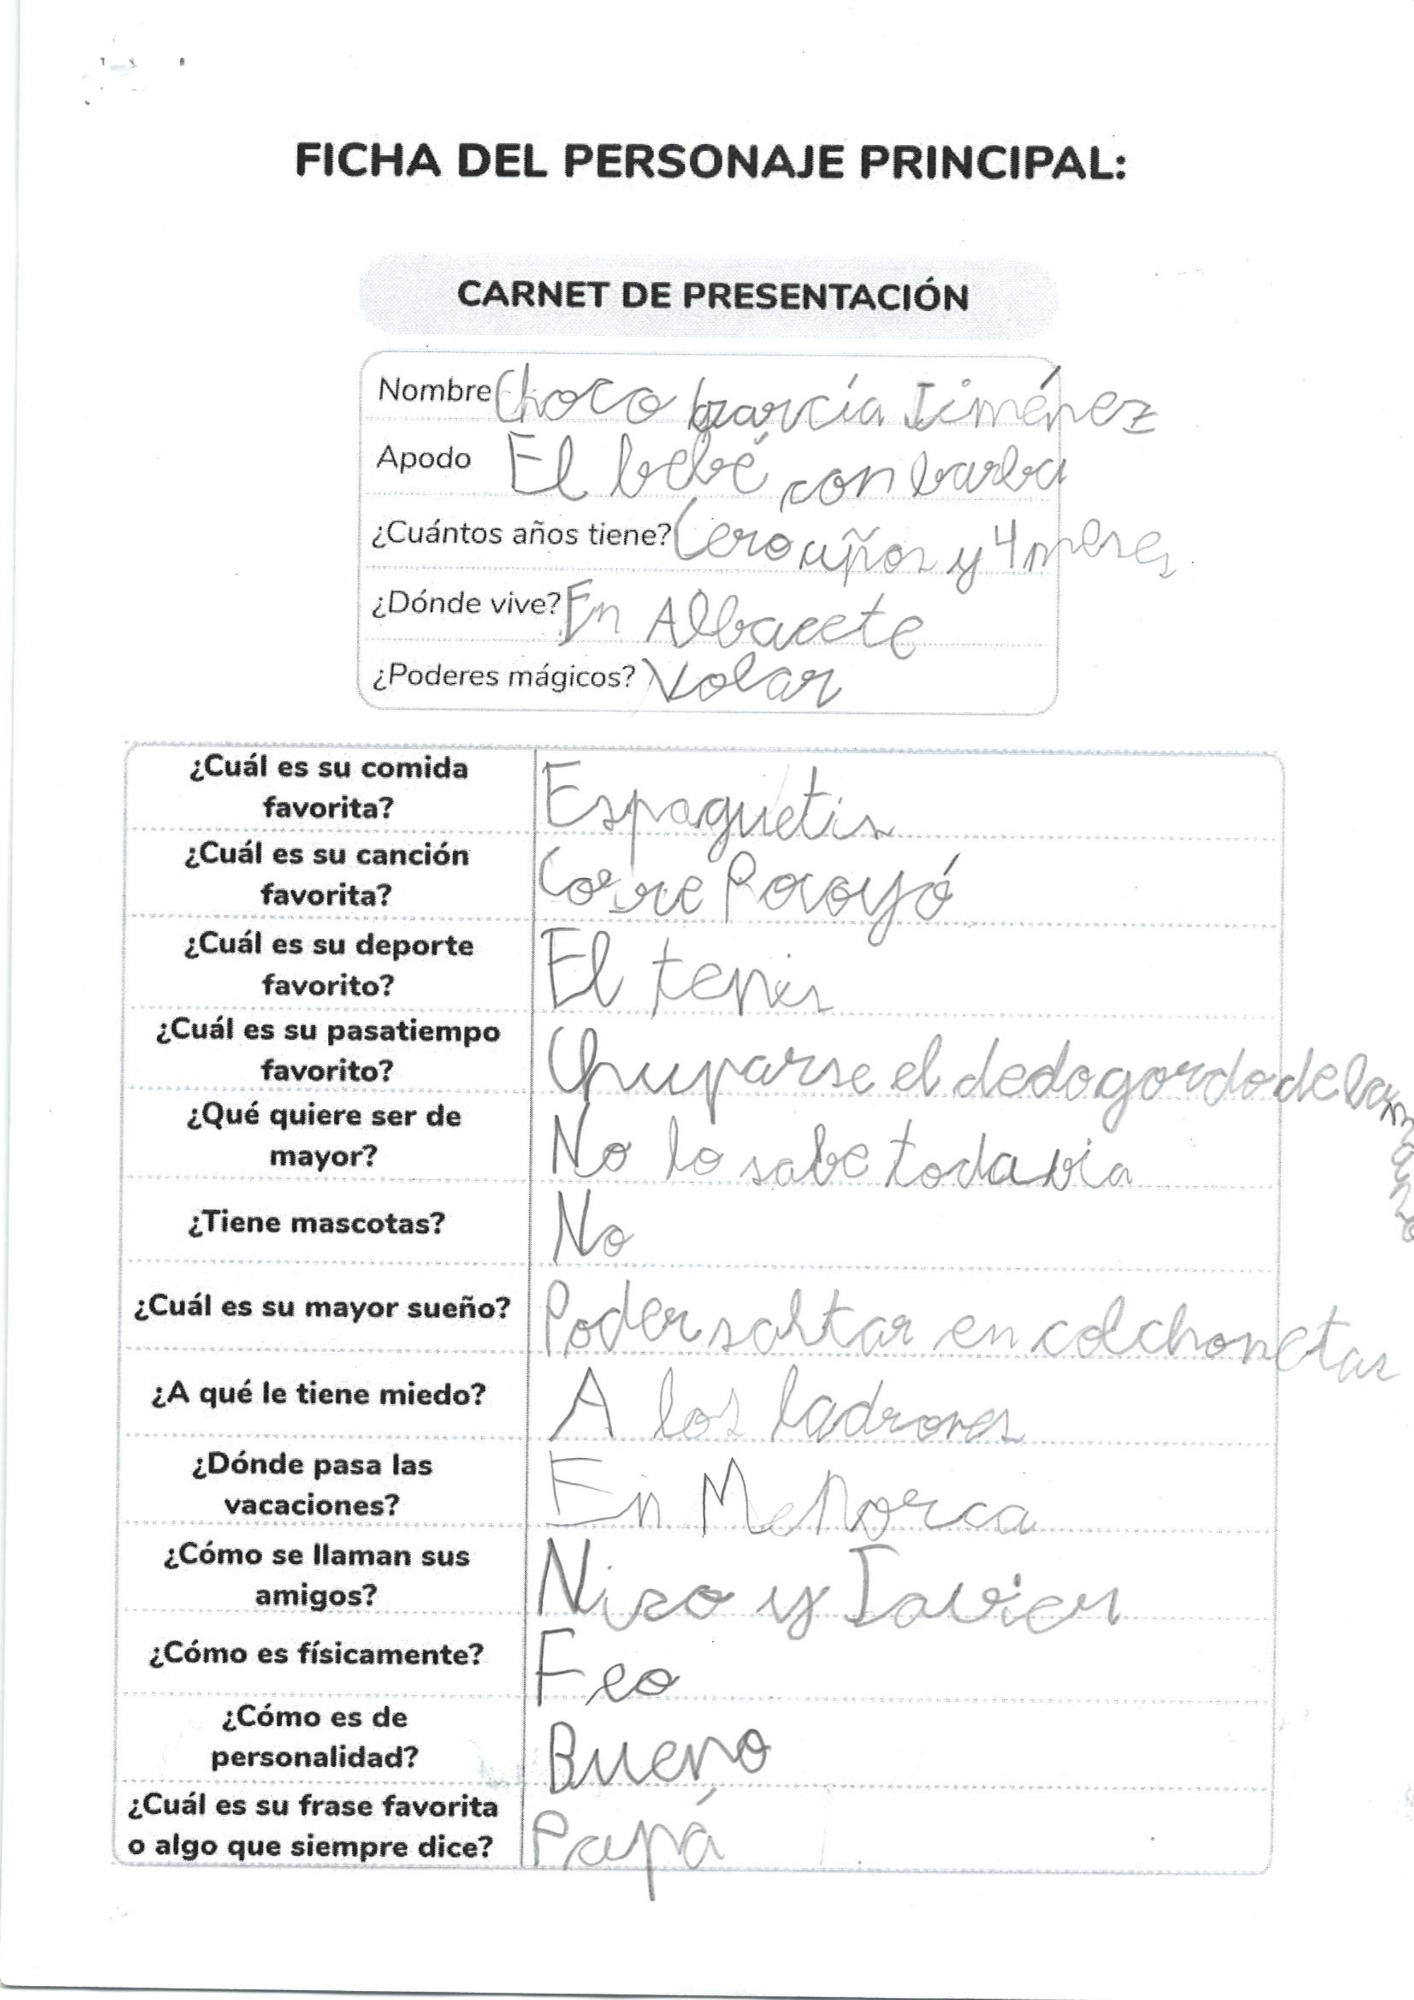 FICHA DEL PERSONAJE PRINCIPAL:
CARNET DE PRESENTACIÓN
Nombre Choco García Jiménez
Apodo El bebé con barba
¿Cuántos años tiene? Cero años y 4 meses
¿Dónde vive? En Albacete
¿Poderes mágicos? Volar
¿Cuál es su comida
favorita?
Espaguetis
¿Cuál es su canción
favorita?
Corre Pocoyó
¿Cuál es su deporte
favorito?
El tenis
¿Cuál es su pasatiempo
favorito?
Chuparse el dedo gordo de la mano
¿Qué quiere ser de
mayor?
No lo sabe todavia
¿Tiene mascotas?
No
¿Cuál es su mayor sueño?
Poder saltar en colchonetas
¿A qué le tiene miedo?
A los ladrones
¿Dónde pasa las
vacaciones?
En Menorca
¿Cómo se llaman sus
amigos?
Nico y Javier
¿Cómo es físicamente?
Feo
¿Cómo es de
personalidad?
Bueno
¿Cuál es su frase favorita
o algo que siempre dice?
Papá